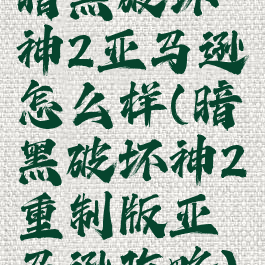 暗黑破坏
神2亚马逊
怎么样(暗
黑破坏神2
重制版亚
马逊攻略)